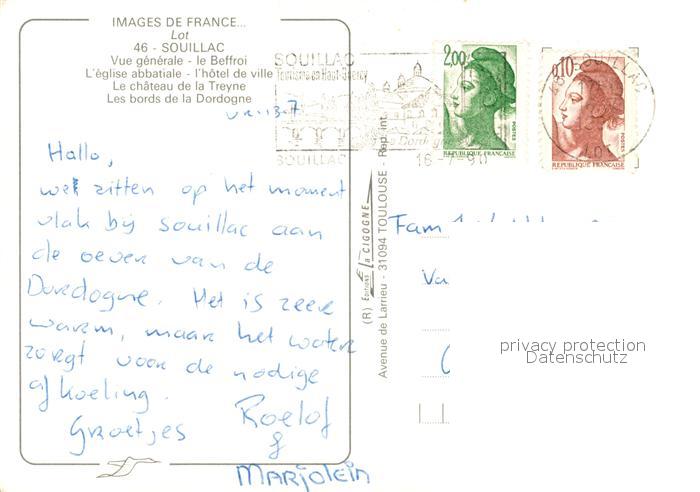 IMAGES DE FRANCE...
Lot
46 - SOUILLAC
Vue générale - le Beffroi
L'église abbatiale - l'hôtel de ville
Le château de la Treyne
Les bords de la Dordogne
vr. 13-7
Hallo,
we zitten op het moment
vlak bij souillac aan
de oever van de
Dordogne. Het is zeer
warm, maar het water
zorgt voor de nodige
afkoeling.
Groetjes Roelof
&
Marjolein
SOUILLAC
Tourisme en Haut-Quercy
SOUILLAC
16-7-90
2,00
POSTES
REPUBLIQUE FRANÇAISE
0,10
POSTES
REPUBLIQUE FRANÇAISE
SOUILLAC
LOT
(R) Editions La CIGOGNE
Avenue de Larrieu - 31094 TOULOUSE - Rep. int.
Fam
Va
privacy protection
Datenschutz